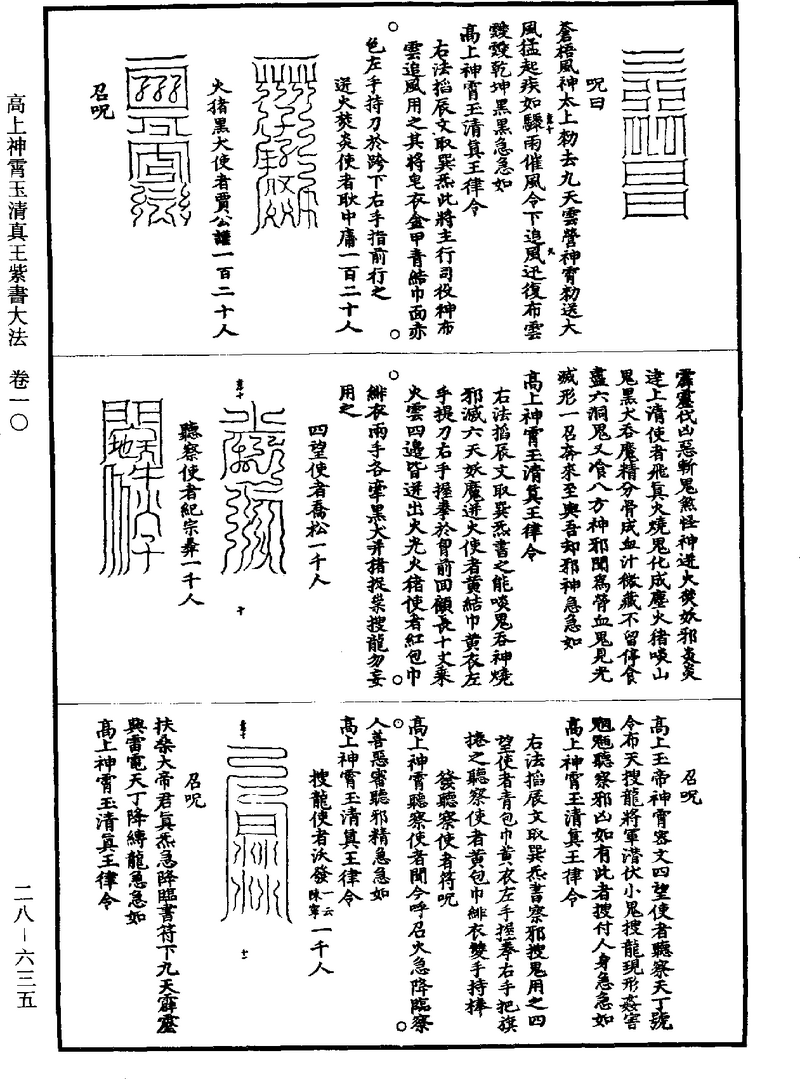 高上神霄玉清真王紫書大法　卷一〇
二八－六三五
呪曰
蒼梧風神太上勑去九天雲營神霄勑送大
風猛起疾如驟雨催風令下追風迅復布雲
靉靉乾坤黑黑急急如
高上神霄玉清真王律令
右法掐辰文取巽炁此將主行司役神布
雲追風用之其將皂衣金甲青結巾面亦
色左手持刀於跨下右手指前行之
迸火焚炎使者耿中庸一百二十人
火猪黑犬使者賈公謹一百二十人
召呪
霹靂伐凶惡斬鬼煞怪神迸火焚妖邪炎炎
達上清使者飛真火燒鬼化成塵火猪啖山
鬼黑犬吞魔精分骨成血汁微藏不留停食
盡六洞鬼又喰八方神邪聞為骨血鬼見光
滅形一召奔來至與吾却邪神急急如
高上神霄玉清真王律令
右法掐辰文取巽炁書之能啖鬼吞神燒
邪滅六天妖魔迸火使者黃結巾黃衣左
手提刀右手握拳於胷前回顧長十丈乘
火雲四邊皆迸出火光火猪使者紅包巾
緋衣兩手各牽黑犬并猪捉祟搜龍勿妄
用之
四望使者喬松一千人
聽察使者紀宗彝一千人
召呪
高上玉帝神霄客文四望使者聽察天丁號
令布天搜龍將軍潛伏小鬼搜龍現形姦害
魍魎聽察邪凶如有此者搜付人身急急如
高上神霄玉清真王律令
右法掐辰文取巽炁書察邪搜鬼用之四
望使者青包巾黃衣左手握拳右手把旗
捲之聽察使者黃包巾緋衣雙手持棒
發聽察使者符呪
高上神霄聽察使者聞今呼召火急降臨察
人善惡審聽邪精急急如
高上神霄玉清真王律令
搜龍使者沃發一云陳寧一千人
召呪
扶桑大帝君真炁急降臨書符下九天霹靂
興雷電天丁降縛龍急急如
高上神霄玉清真王律令